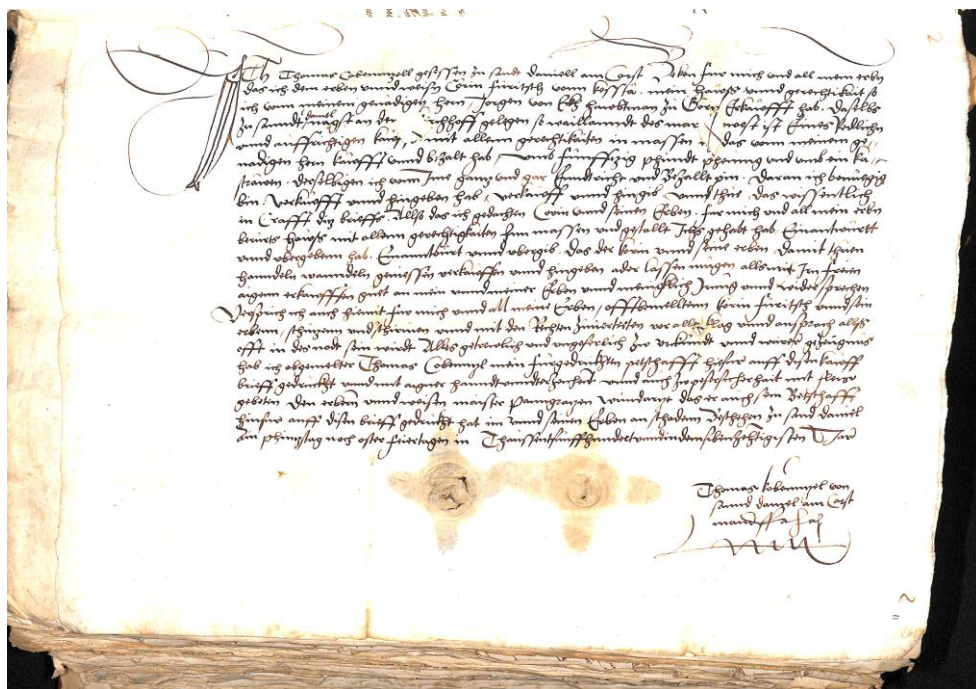 Ich Thomas Cobennzell gesessen zu sandt Daniell am Corst Beken fur mich und all mein erbn
das ich dem erben unnd weisn Corin Furitsch vonn kossia mein hawss unnd gerechtikait so
ich vonn meinem genadigen hern Jorgen von Ekh haubtman zu Gorcz Erkaufft hab. daselbs
zu sanndt daniel nagst an der kirchhoff gelegen so weillanndt des ist Eines Redlichn
und auffrichtigen kauf mit allem gerechtikaiten in massen ich das vonn meinem ge
nadigen hern kaufft unnd bezalt hab, Umb funffizig phundt phening und umb ein ka
strawn. derselbigen ich vonn Ime gancz und gar enntricht und bezallt pin. daran ich benuegig
bin, verkaufft unnd hingeben hab, verkauff unnd hingib unnd thue das wissentlich
in Crafft diz brieffs Alls das ich gedachten Corin unnd seinen Erben. fur mich und all mein erbn
berurts hawss mit allenn gerechtikaiten Inn massen und gestallt Ichs gehabt hab Einantwurtt
unnd ubergebenn hab. Einantburt unnd ubergib. das der Corin unnd seine erben. damit thuen
hanndeln wanndeln geniessen verkauffen unnd hingeben ader lassen mugen alls mit Irn freien
aigenn erkaufften guet an mein unnd meiner Erben und menigklich Irrung und widersprechen
Versprich ich auch hiemit fur mich unnd all meine Erben, offtbemelltenn Corin Furitsch unnd sein
erbenn, schuczenn und schirmen unnd mit den Rechten zuvertreten vor allen klag unnd ansprach allss
offt in des nodt sein wirdt Alles getreulich und ungeferlich Zw urkundt unnd warer gezeugnus
hab ich obgemelter Thomas Cobenczl mein furgedrukhten petschafft hiefur auff disen kauff
brieff gedrukht unnd mit aigner hanndt unnderzeichent. unnd auch zu pesser sicherhait mit fleiss
gebeten den erbern unnd weisen maister Panngraczen das er auch sein Betschafft
hinfur auff disen brieff gedrukht hat im unnd seinen Erben an schadenn Beschehen zu sand daniel
am phincztag nach oster feiertagen in Thaussintfunffhundert unnd in den sibenzehtigisten Jar
Thomas kobennczel von
sannd daniel am Carst
manu propria